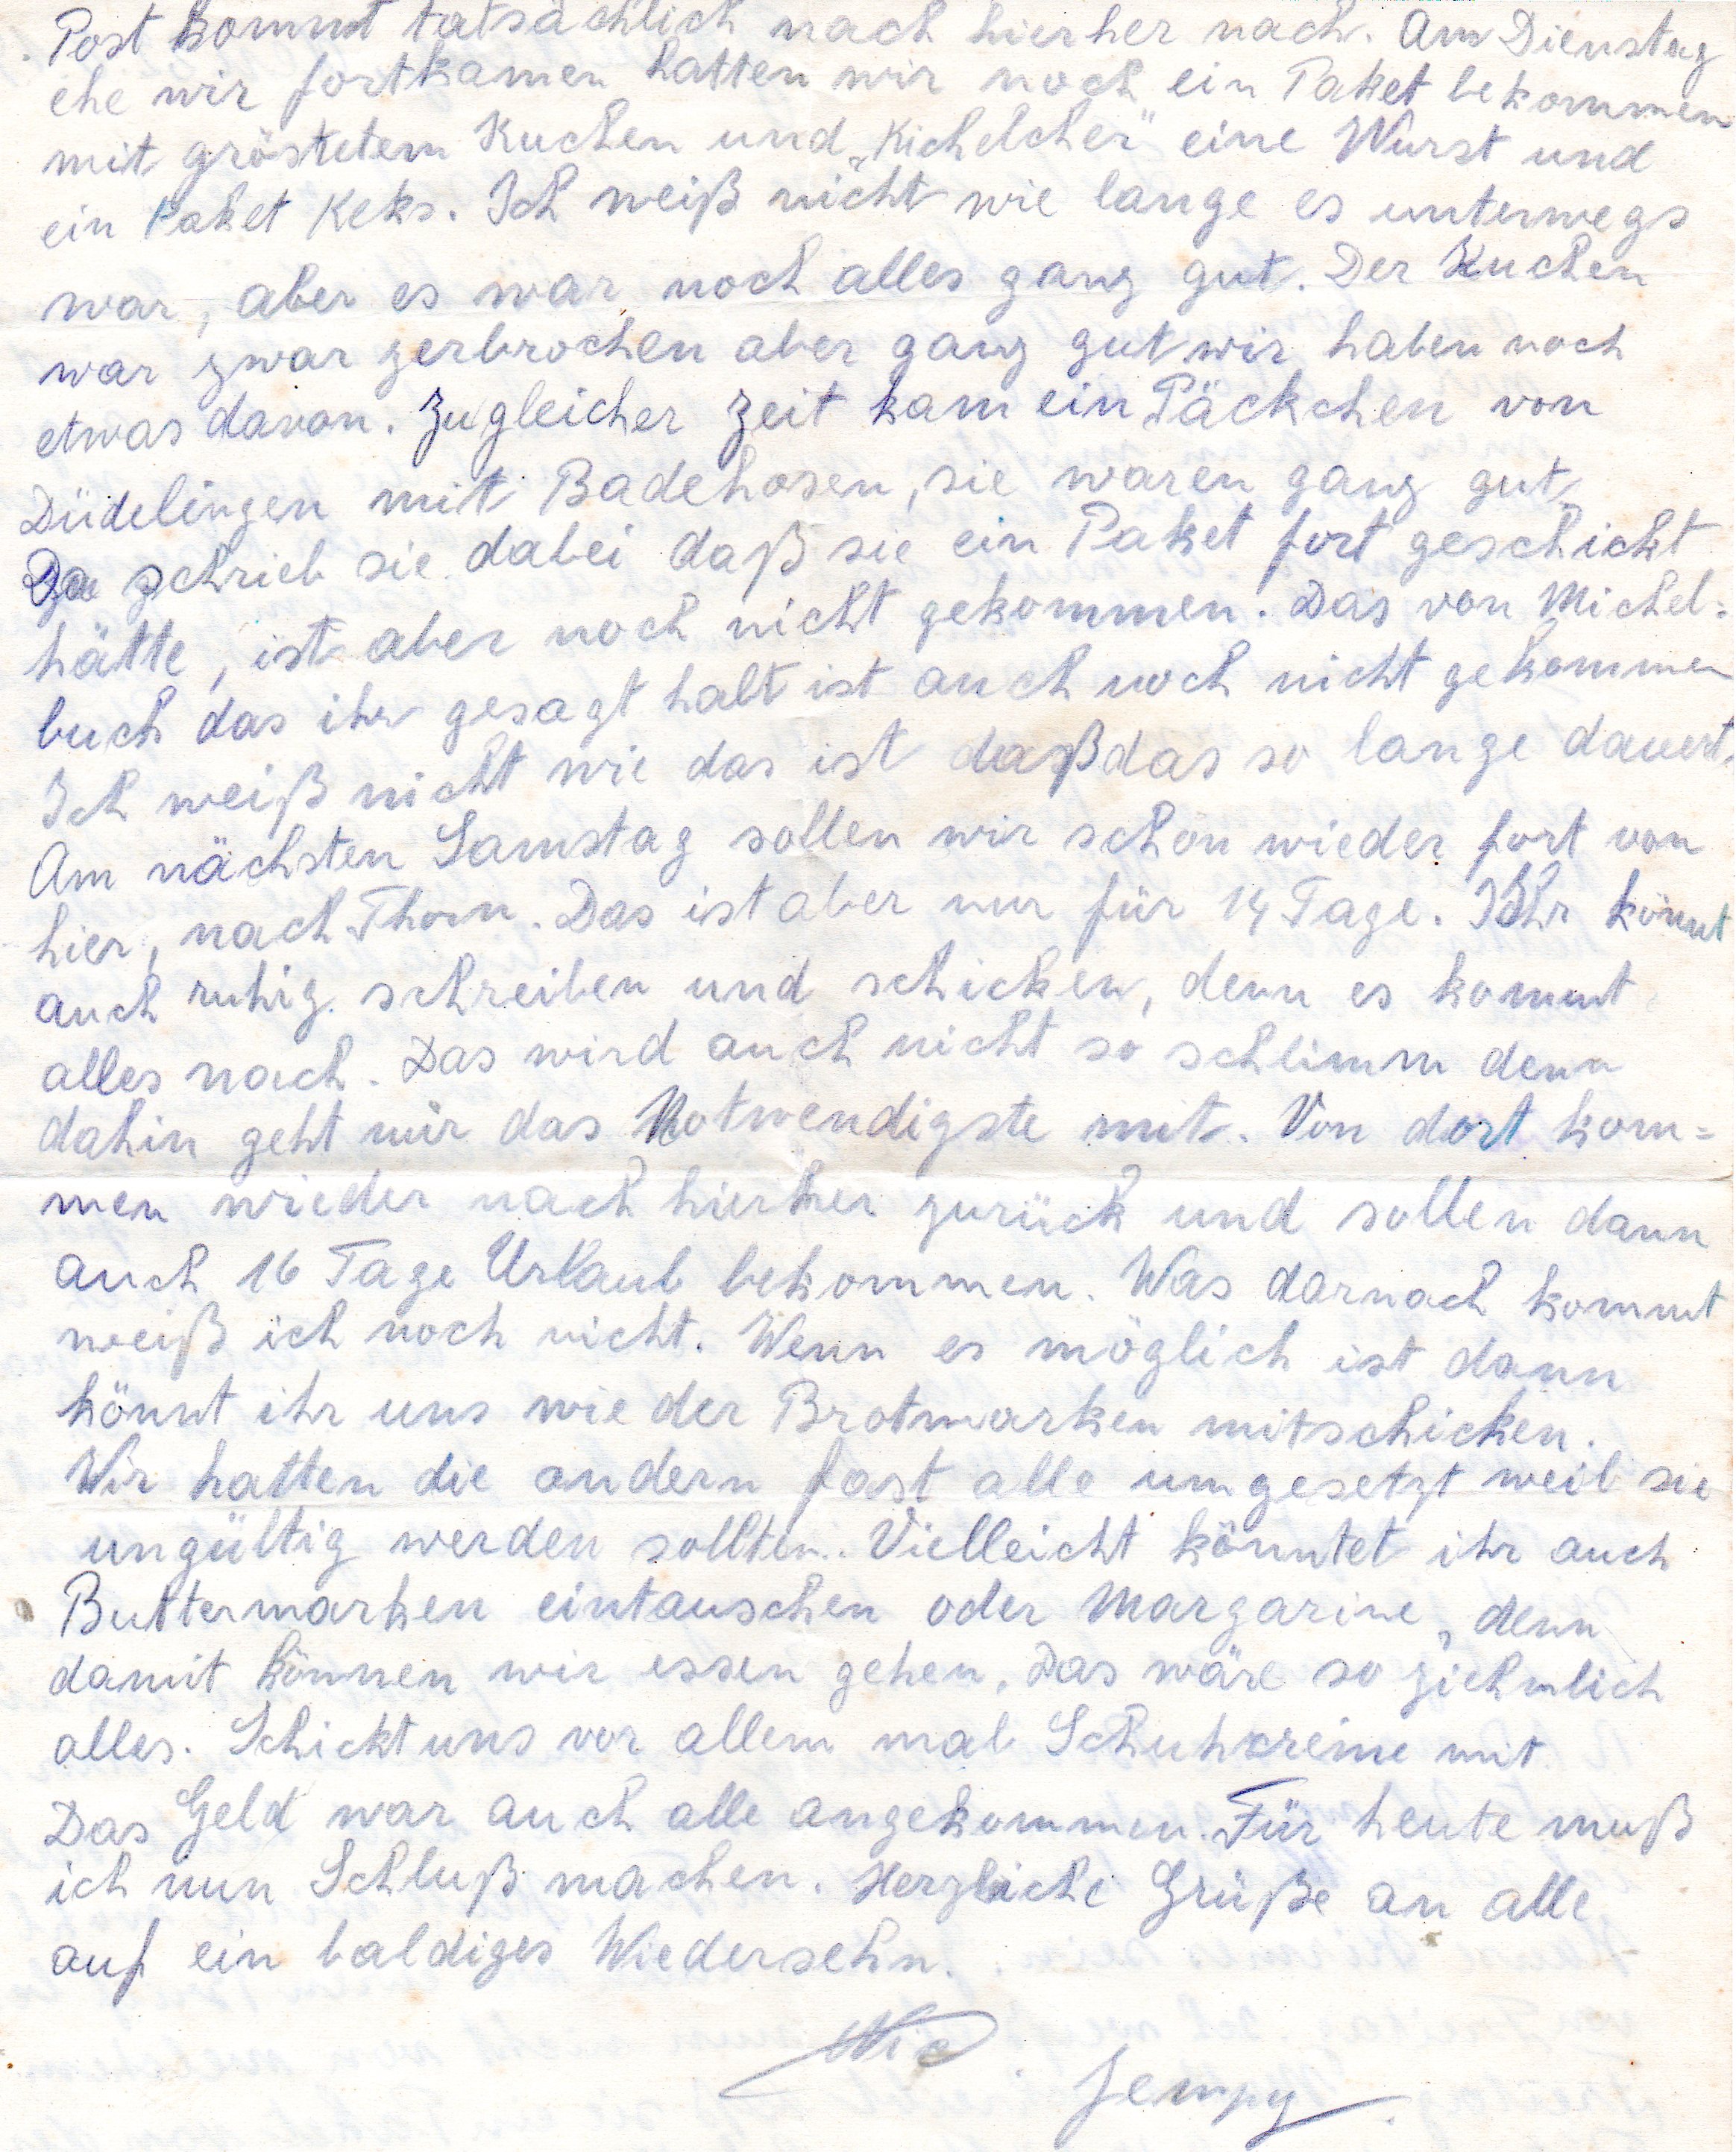 Post kommt tatsächlich nach hierher nach. Am Dienstag
ehe wir fortkamen hatten wir noch ein Paket bekommen
mit gröstetem Kuchen und „Kichelcher" eine Wurst und
ein Paket Keks. Ich weiß nicht wie lange es unterwegs
war, aber es war noch alles ganz gut. Der Kuchen
war zwar zerbrochen aber ganz gut wir haben noch
etwas davon. Zugleicher Zeit kam ein Päckchen von
Düdelingen mit Badehosen, sie waren ganz gut,
Da schrieb sie dabei daß sie ein Paket fort geschickt
hätte, ist aber noch nicht gekommen. Das von Michel=
buch das ihr gesagt habt ist auch noch nicht gekommen
Ich weiß nicht wie das ist daß das so lange dauert.
Am nächsten Samstag sollen wir schon wieder fort von
hier, nach Thorn. Das ist aber nur für 14 Tage. Ihr könnt
auch ruhig schreiben und schicken, denn es kommt
alles nach. Das wird auch nicht so schlimm denn
dahin geht nur das Notwendigste mit. Von dort kom=
men wieder nach hierher zurück und sollen dann
auch 16 Tage Urlaub bekommen. Was darnach kommt
weiß ich noch nicht. Wenn es möglich ist dann
könnt ihr uns wieder Brotmarken mitschicken.
Wir hatten die andern fast alle umgesetzt weil sie
ungültig werden sollten. Vielleicht könntet ihr auch
Buttermarken eintauschen oder Margarine, denn
damit können wir essen gehen. Das wäre so ziehmlich
alles. Schickt uns vor allem mal Schuhkreme mit.
Das Geld war auch alle angekommen. Für heute muß
ich nun Schluß machen. Herzliche Grüße an alle
auf ein baldiges Wiedersehn.
Nic. Jempy.